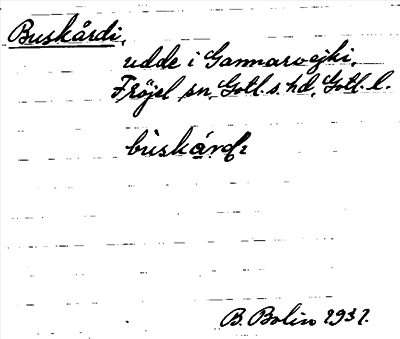 Buskårdi,
udde i Gannarvejki,
Fröjel sn, Gotl. s. hd, Gotl. l.
B. Bolin 1937.